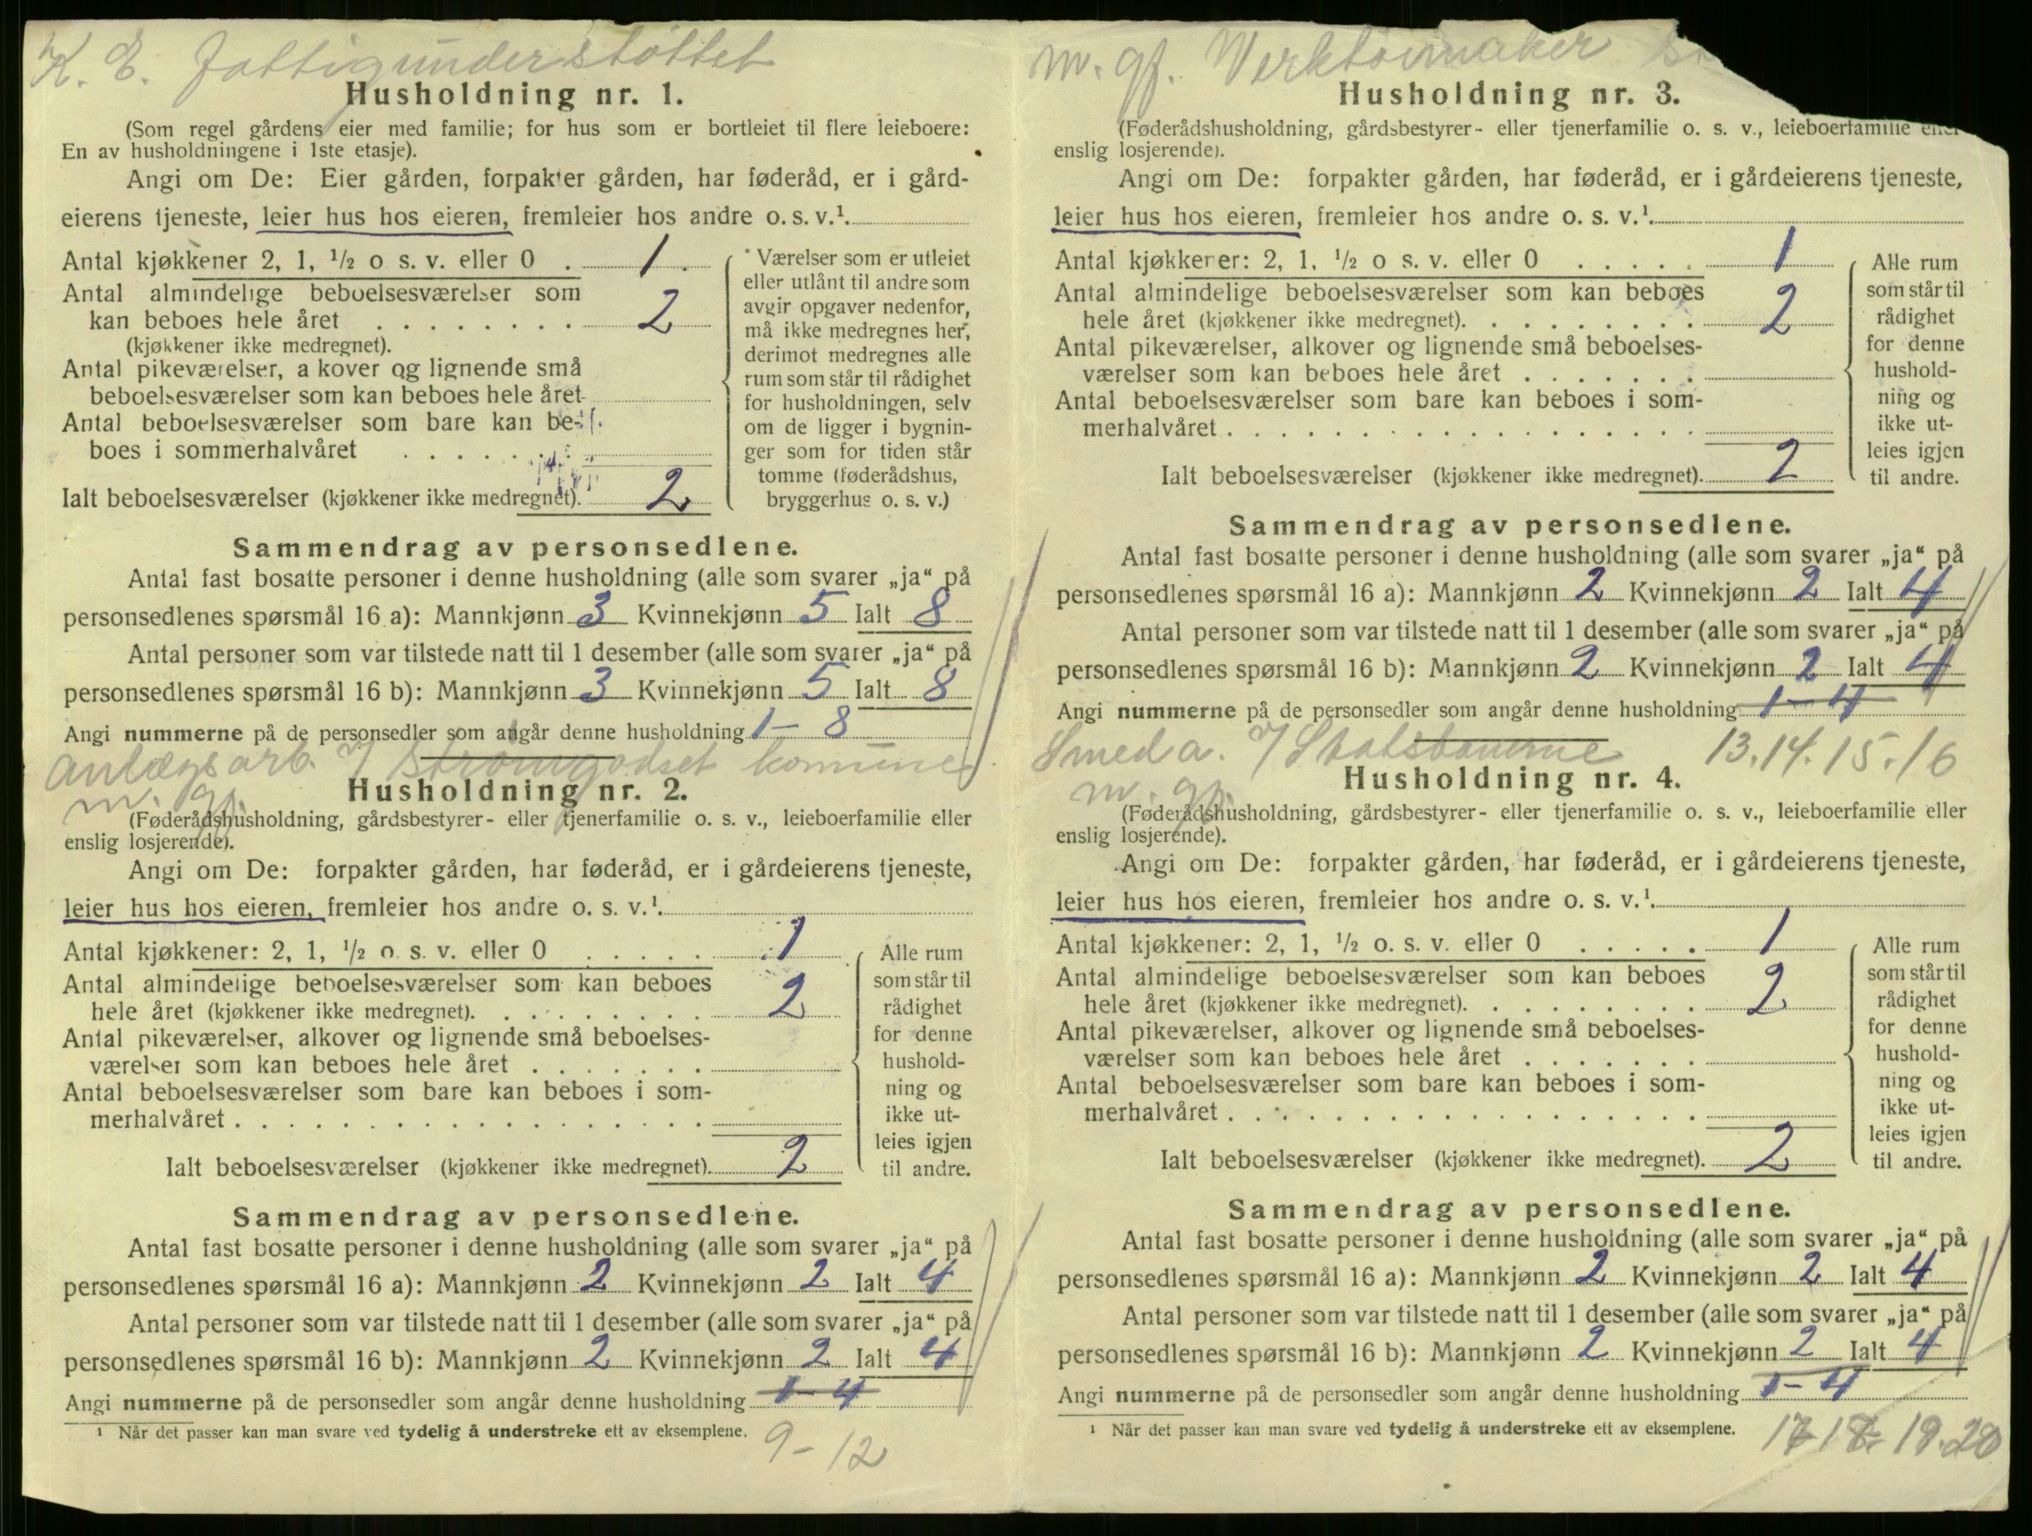 K. E. Fattigunderstøttet
Husholdning nr. 1.
(Som regel gårdens eier med familie; for hus som er bortleiet til flere leieboere:
En av husholdningene i 1ste etasje).
Angi om De: Eier gården, forpakter gården, har føderåd, er i gård-
eierens tjeneste, leier hus hos eieren, fremleier hos andre o. s. v.¹.
Antal kjøkkener 2, 1, ½ o s. v. eller 0 . 1
Antal almindelige beboelsesværelser som
kan beboes hele året . . . . . . . . 2
(kjøkkener ikke medregnet).
Antal pikeværelser, a kover og lignende små
beboelsesværelser som kan beboes hele året
Antal beboelsesværelser som bare kan be-
boes i sommerhalvåret . . . . . .
Ialt beboelsesværelser (kjøkkener ikke medregnet). 2
Værelser som er utleiet
eller utlånt til andre som
avgir opgaver nedenfor,
må ikke medregnes her,
derimot medregnes alle
rum som står til rådighet
for husholdningen, selv
om de ligger i bygnin-
ger som for tiden står
tomme (føderådshus,
bryggerhus o. s. v.)
Sammendrag av personsedlene.
Antal fast bosatte personer i denne husholdning (alle som svarer „ja“ på
personsedlenes spørsmål 16 a): Mannkjønn 3 Kvinnekjønn 5 Ialt 8
Antal personer som var tilstede natt til 1 desember (alle som svarer „ja“ på
personsedlenes spørsmål 16 b): Mannkjønn 3 Kvinnekjønn 5 Ialt 8
Angi nummerne på de personsedler som angår denne husholdning 1 – 8
Anlægsarb. v/ Strømgodset kommune
m. gf.
Husholdning nr. 2.
(Føderådshusholdning, gårdsbestyrer- eller tjenerfamilie o. s. v., leieboerfamilie eller
enslig losjerende).
Angi om De: forpakter gården, har føderåd, er i gårdeierens tjeneste,
leier hus hos eieren, fremleier hos andre o. s. v.¹.
Antal kjøkkener: 2, 1, ½ o. s. v. eller 0 . . . . . 1
Antal almindelige beboelsesværelser som kan beboes
hele året (kjøkkener ikke medregnet). . . . . . . . . 2
Antal pikeværelser, alkover og lignende små beboelses-
værelser som kan beboes hele året . . . . . . .
Antal beboelsesværelser som bare kan beboes i som-
merhalvåret . . . . . . . . . . . . . . . . . .
Ialt beboelsesværelser (kjøkkener ikke medregnet). 2
Alle rum
som står til
rådighet
for denne
hushold-
ning og
ikke ut-
leies igjen
til andre.
Sammendrag av personsedlene.
Antal fast bosatte personer i denne husholdning (alle som svarer „ja“ på
personsedlenes spørsmål 16 a): Mannkjønn 2 Kvinnekjønn 2 Ialt 4
Antal personer som var tilstede natt til 1 desember (alle som svarer „ja“ på
personsedlenes spørsmål 16 b): Mannkjønn 2 Kvinnekjønn 2 Ialt 4
Angi nummerne på de personsedler som angår denne husholdning 1 – 4
¹ Når det passer kan man svare ved tydelig å understreke ett av eksemplene.
9 – 12
m. gf. Verktøimaker
Husholdning nr. 3.
(Føderådshusholdning, gårdsbestyrer- eller tjenerfamilie o. s. v., leieboerfamilie eller
enslig losjerende).
Angi om De: forpakter gården, har føderåd, er i gårdeierens tjeneste,
leier hus hos eieren, fremleier hos andre o. s. v.¹.
Antal kjøkkener: 2, 1, ½ o s. v. eller 0 . . . . . 1
Antal almindelige beboelsesværelser som kan beboes
hele året (kjøkkener ikke medregnet). . . . . . . . . 2
Antal pikeværelser, alkover og lignende små beboelses-
værelser som kan beboes hele året . . . . . . .
Antal beboelsesværelser som bare kan beboes i som-
merhalvåret . . . . . . . . . . . . . . . . . .
Ialt beboelsesværelser (kjøkkener ikke medregnet). 2
Alle rum
som står til
rådighet
for denne
hushold-
ning og
ikke ut-
leies igjen
til andre.
Sammendrag av personsedlene.
Antal fast bosatte personer i denne husholdning (alle som svarer „ja“ på
personsedlenes spørsmål 16 a): Mannkjønn 2 Kvinnekjønn 2 Ialt 4
Antal personer som var tilstede natt til 1 desember (alle som svarer „ja“ på
personsedlenes spørsmål 16 b): Mannkjønn 2 Kvinnekjønn 2 Ialt 4
Angi nummerne på de personsedler som angår denne husholdning 1 – 4
Smed a. v/ Statsbanerne 13. 14. 15. 16
m. gf.
Husholdning nr. 4.
(Føderådshusholdning, gårdsbestyrer- eller tjenerfamilie o. s. v., leieboerfamilie eller
enslig losjerende).
Angi om De: forpakter gården, har føderåd, er i gårdeierens tjeneste,
leier hus hos eieren, fremleier hos andre o. s. v.¹.
Antal kjøkkener: 2, 1, ½ o. s. v. eller 0 . . . . . 1
Antal almindelige beboelsesværelser som kan beboes
hele året (kjøkkener ikke medregnet). . . . . . . . . 2
Antal pikeværelser, alkover og lignende små beboelses-
værelser som kan beboes hele året . . . . . . .
Antal beboelsesværelser som bare kan beboes i som-
merhalvåret . . . . . . . . . . . . . . . . . .
Ialt beboelsesværelser (kjøkkener ikke medregnet). 2
Alle rum
som står til
rådighet
for denne
hushold-
ning og
ikke ut-
leies igjen
til andre.
Sammendrag av personsedlene.
Antal fast bosatte personer i denne husholdning (alle som svarer „ja“ på
personsedlenes spørsmål 16 a): Mannkjønn 2 Kvinnekjønn 2 Ialt 4
Antal personer som var tilstede natt til 1 desember (alle som svarer „ja“ på
personsedlenes spørsmål 16 b): Mannkjønn 2 Kvinnekjønn 2 Ialt 4
Angi nummerne på de personsedler som angår denne husholdning 1 – 4
¹ Når det passer kan man svare ved tydelig å understreke ett av eksemplene.
17 18. 19. 20